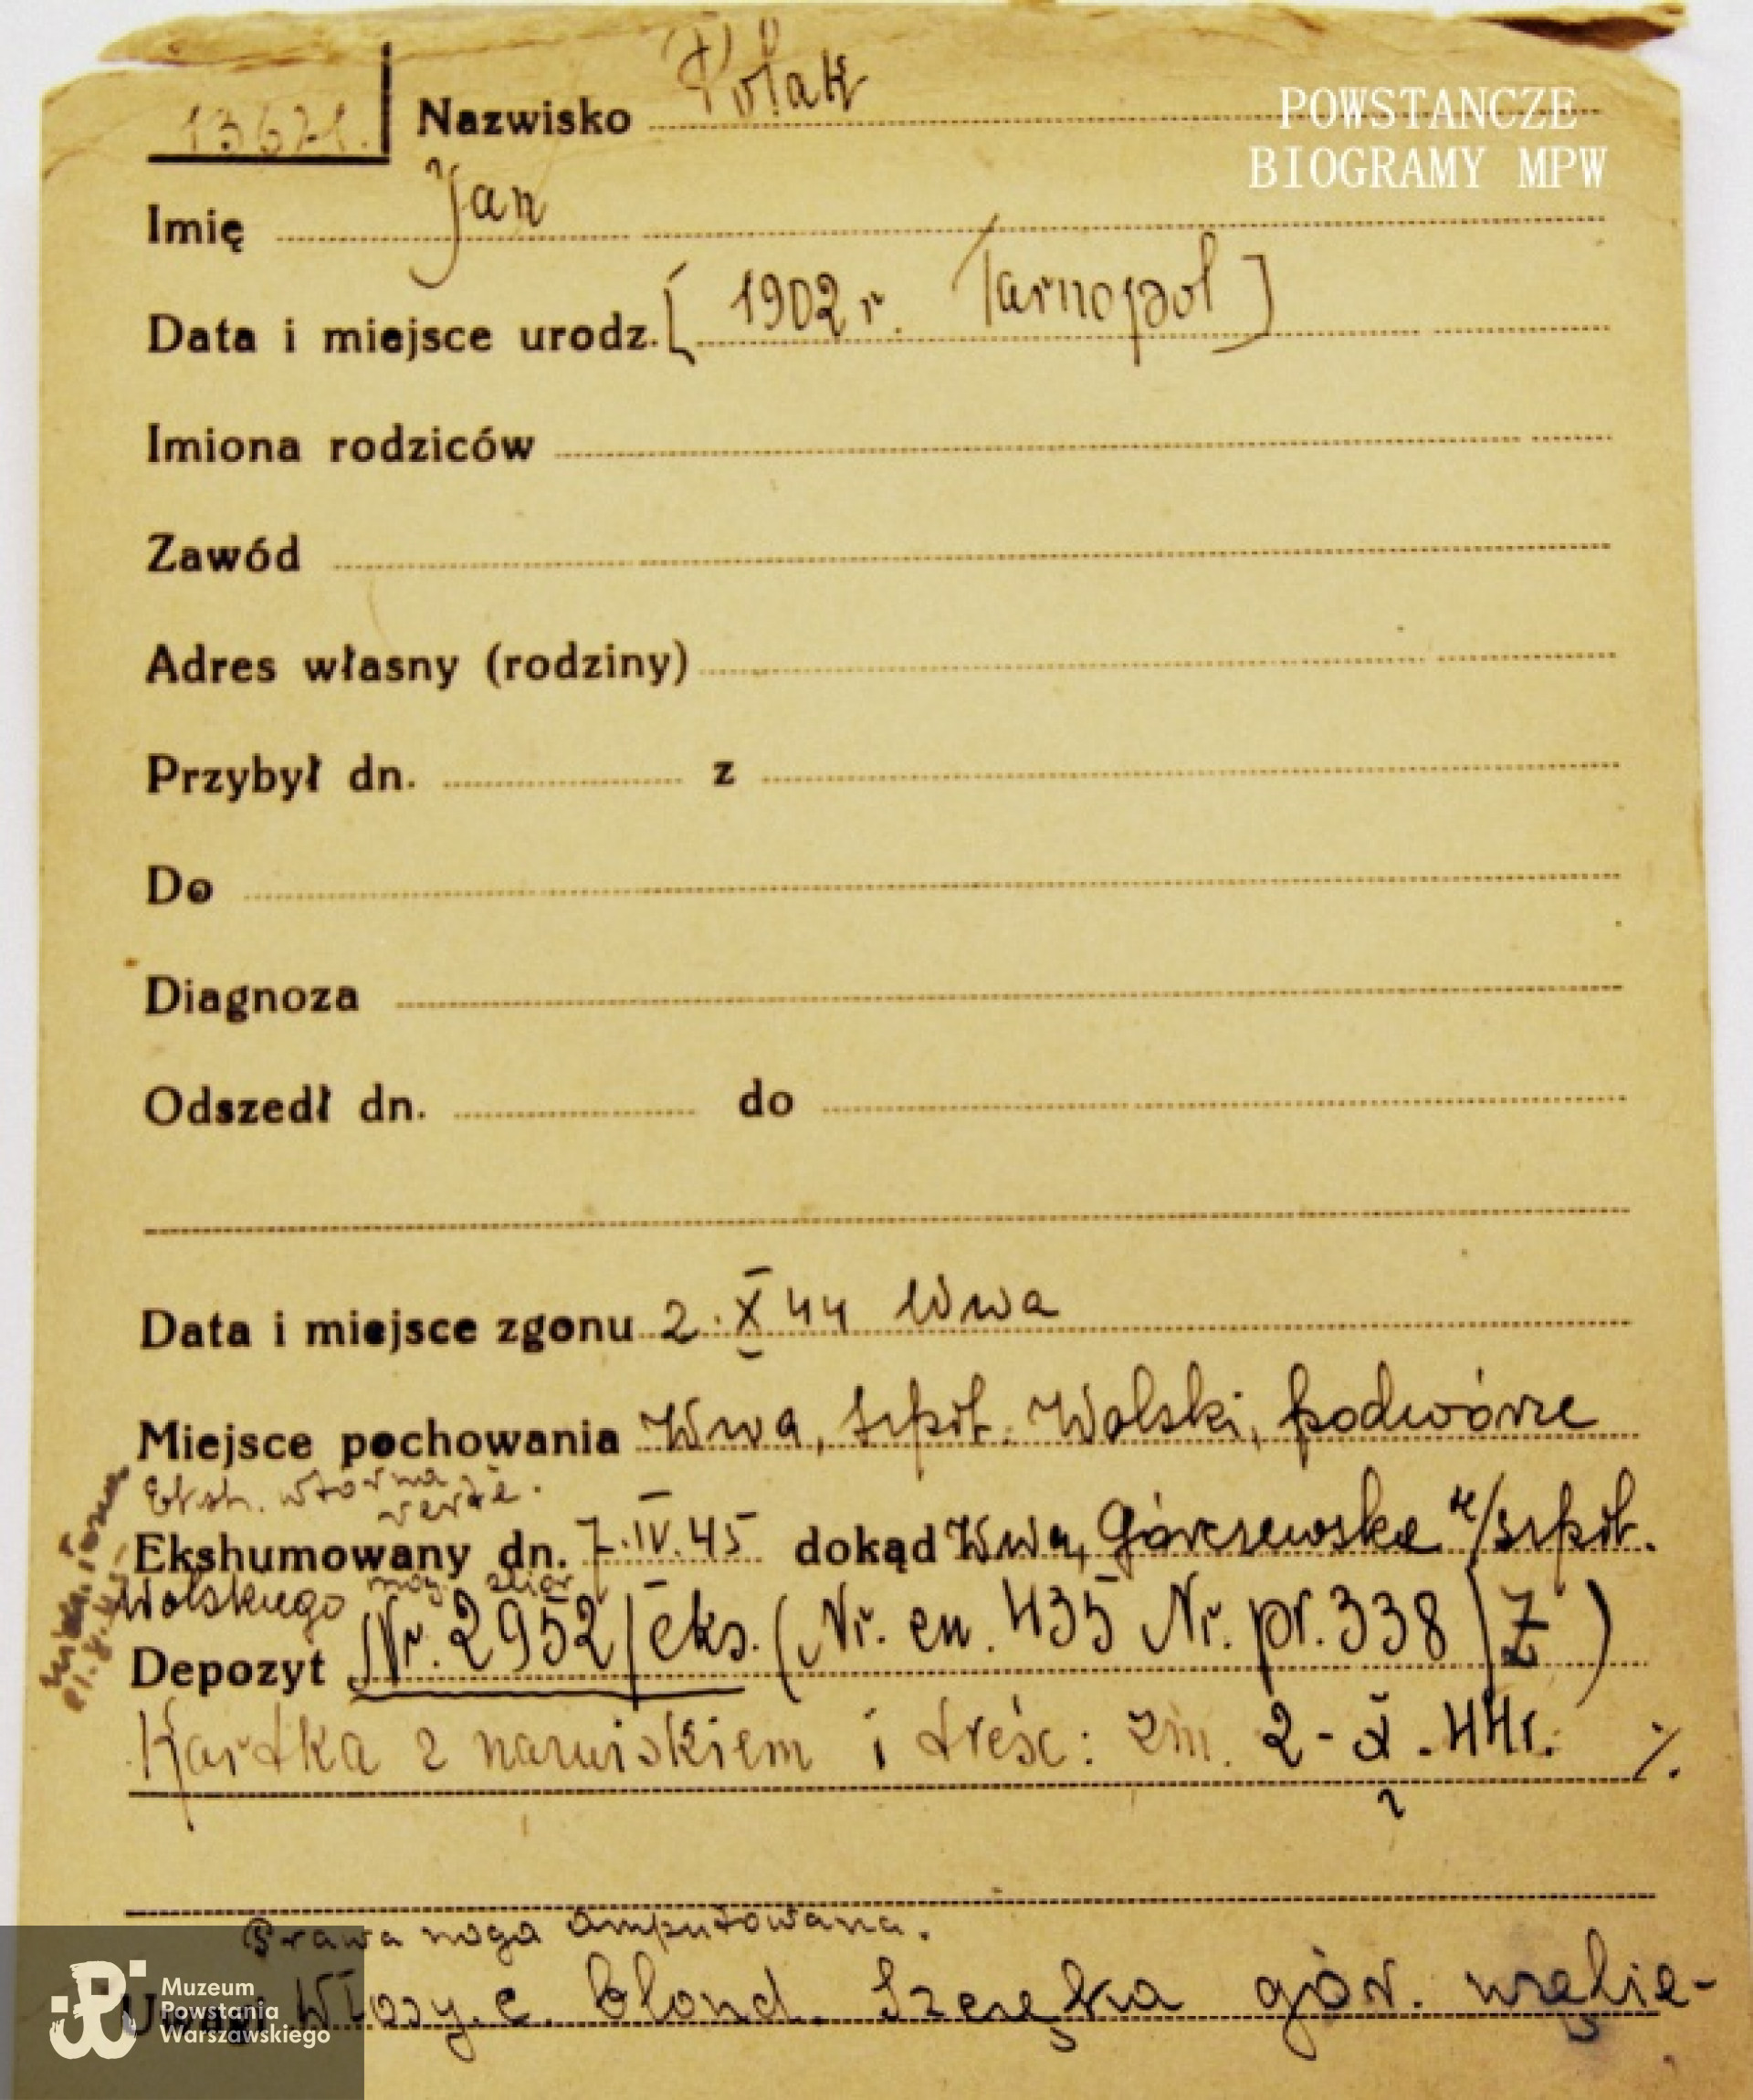 13621. Nazwisko Polak
POWSTANCZE
BIOGRAMY MPW
Imię Jan
Data i miejsce urodz. [1902 r. Tarnopol]
Imiona rodziców
Zawód
Adres własny (rodziny)
Przybył dn. z
Do
Diagnoza
Odszedł dn. do
Data i miejsce zgonu 2. X 44 Wwa
Miejsce pochowania Wwa, szpit. Wolski, podwórze
Eksh. wtórna
Ekshumowany dn. 7.IV.45 dokąd Wwa, Górczewska /szpit.
Wolskiego
Depozyt Nr. 2952/eks. (Nr. en. 435 Nr. pr. 338/Z)
Kartka z nazwiskiem i treśc: zm. 2-X.44r. %
?
Prawa noga amputowana.
Uwagi Włosy c. blond. Szczęka gór. uzębie-
Muzeum
Powstania
Warszawskiego